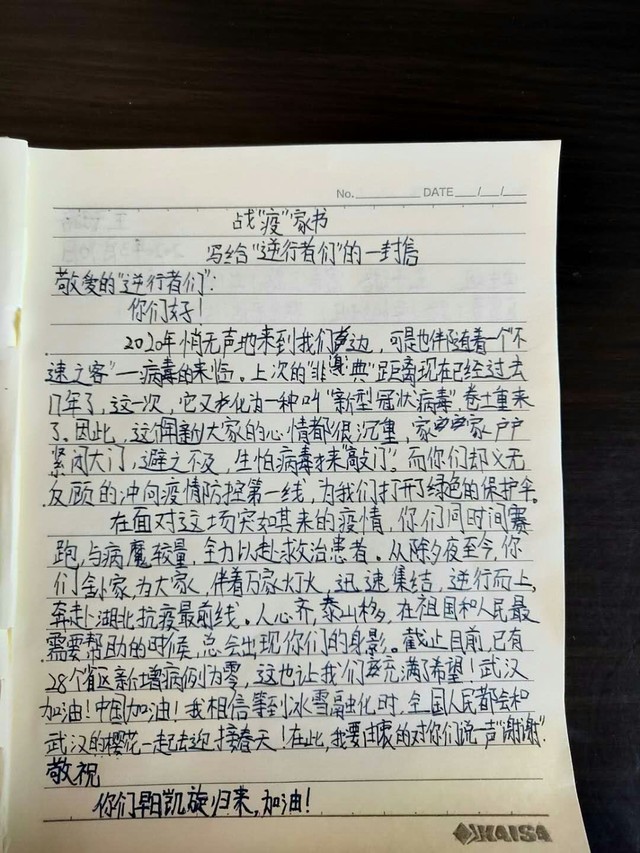 No. DATE / /
战"疫"家书
写给"逆行者们"的一封信
敬爱的"逆行者们":
你们好!
2020年悄无声地来到我们身边,可是也伴随着一个"不
速之客"—病毒的来临。上次的"非典"距离现在已经过去
17年了,这一次,它又化为一种叫"新型冠状病毒"卷土重来
了。因此,这个年大家的心情都很沉重,家家户户
紧闭大门,避之不及,生怕病毒来"敲门"。而你们却义无
反顾的冲向疫情防控第一线,为我们打开了绿色的保护伞。
在面对这场突如其来的疫情,你们同时间赛
跑,与病魔较量,全力以赴救治患者。从除夕夜至今,你
们舍小家,为大家,伴着万家灯火,迅速集结,逆行而上,
奔赴湖北抗疫最前线。人心齐,泰山移,在祖国和人民最
需要帮助的时候,总会出现你们的身影。截止目前,已有
28个省区新增病例为零,这也让我们充满了希望!武汉
加油!中国加油!我相信等到冰雪融化时,全国人民都会和
武汉的樱花一起去迎接春天!在此,我要由衷的对你们说一声"谢谢".
敬祝
你们早日凯旋归来,加油!
HAISA